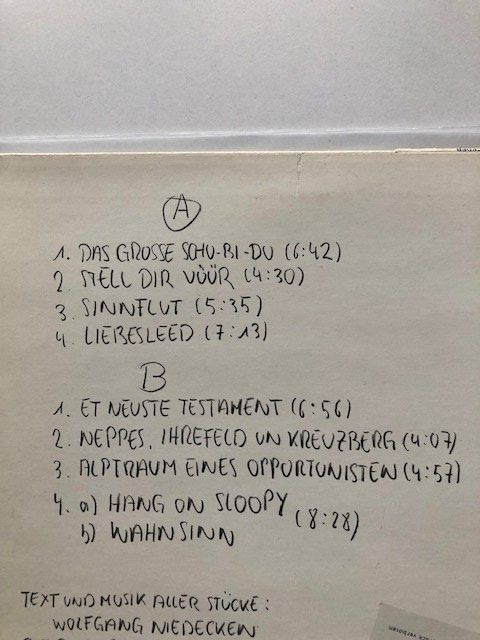 A
1. DAS GROSSE SCHU-BI-DU (6:42)
2. STELL DIR VÜÜR (4:30)
3. SINNFLUT (5:35)
4. LIEBESLEED (7:13)
B
1. ET NEUSTE TESTAMENT (6:56)
2. NEPPES, IHREFELD UN KREUZBERG (4:07)
3. ALPTRAUM EINES OPPORTUNISTEN (4:57)
4. a) HANG ON SLOOPY
b) WAHNSINN (8:28)
TEXT UND MUSIK ALLER STÜCKE:
WOLFGANG NIEDECKEN
verboten